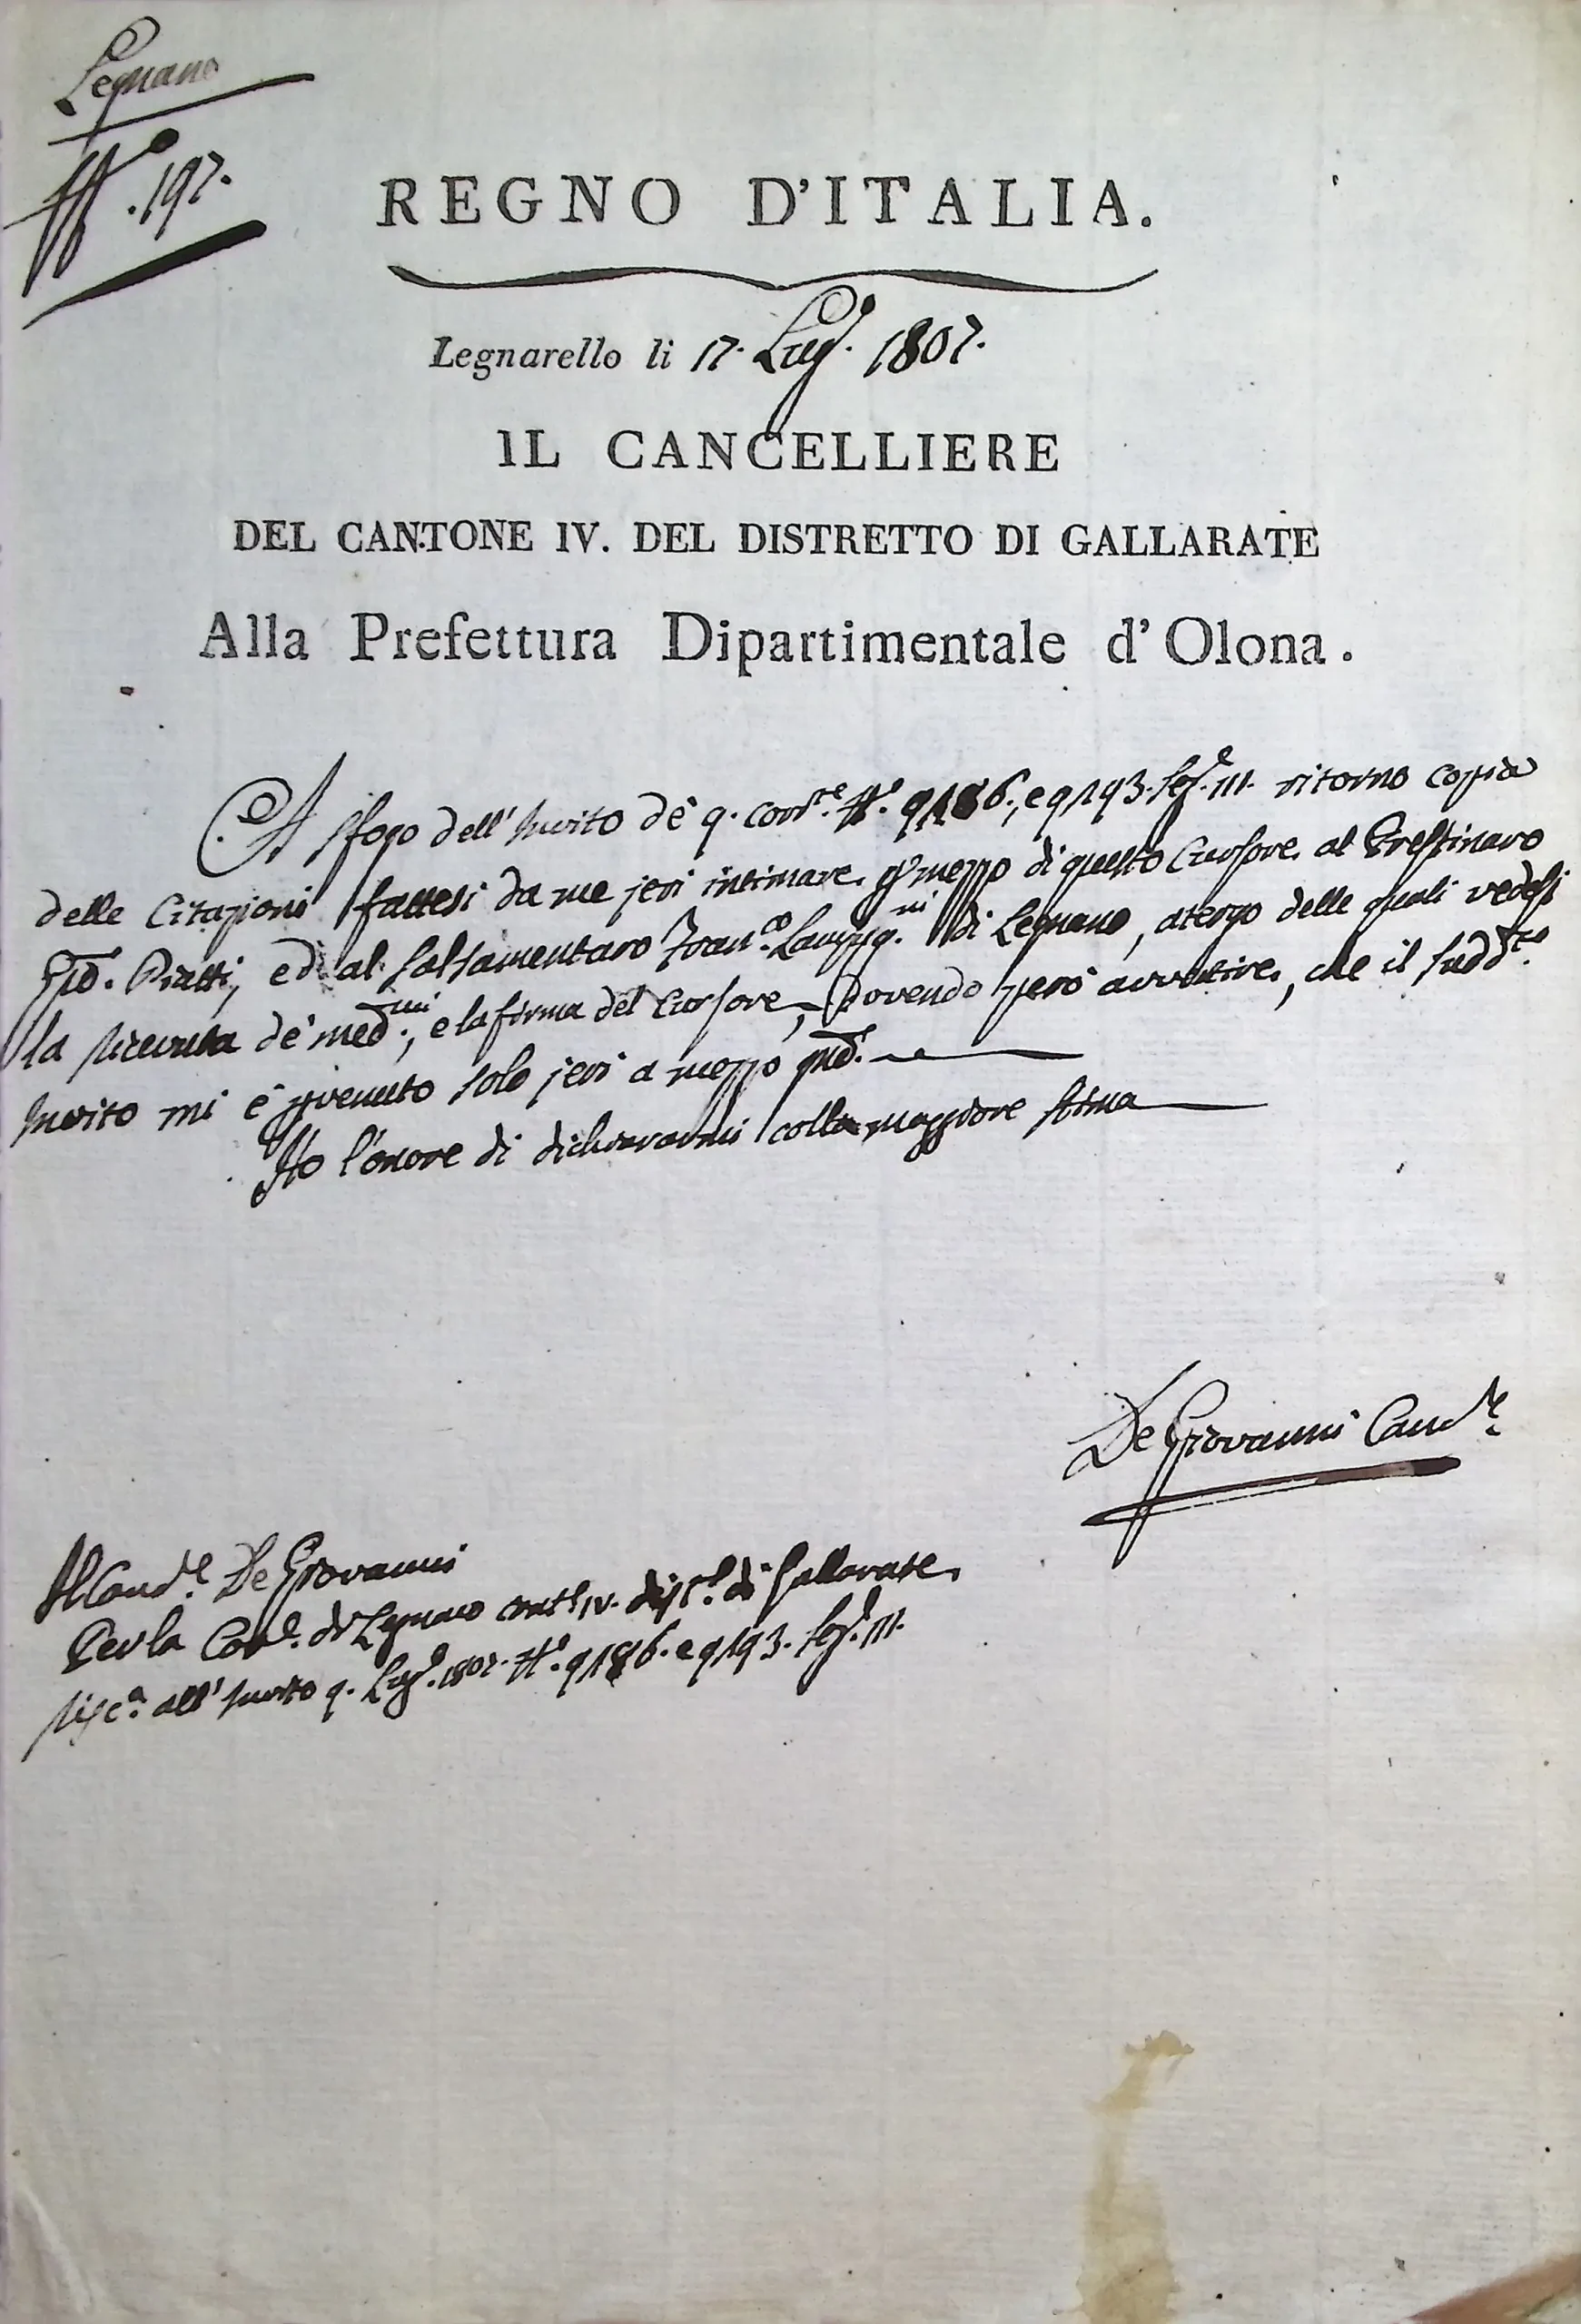 Legnano
N.º 197.
REGNO D'ITALIA.
Legnarello li 17. Lug.º 1807.
IL CANCELLIERE
DEL CANTONE IV. DEL DISTRETTO DI GALLARATE
Alla Prefettura Dipartimentale d'Olona.
A sfogo dell'Invito de' 9. corr.te N.º 9186., e 9193. Sez.e III. ritorno copia
delle Citazioni fattesi da me jeri intimare p. mezzo di questo Cursore al Prestinaro
Gio. Piatti, ed al Salsamentaro Fran.co Lampug.ni di Legnano, atergo delle quali vedesi
la ricevuta de' med.mi, e la firma del Cursore, Dovendo però avvertire, che il sudd.to
Invito mi è pervenuto solo jeri a mezzo gio.
Ho l'onore di dichiararmi colla maggiore stima
De Giovanni Canc.re
Il Canc.re De Giovanni
Per la Com.e di Legnano cant.e IV. dist.o di Gallarate
risc.a all'Invito 9. Lug.o 1807. N.º 9186. e 9193. Sez.e III.